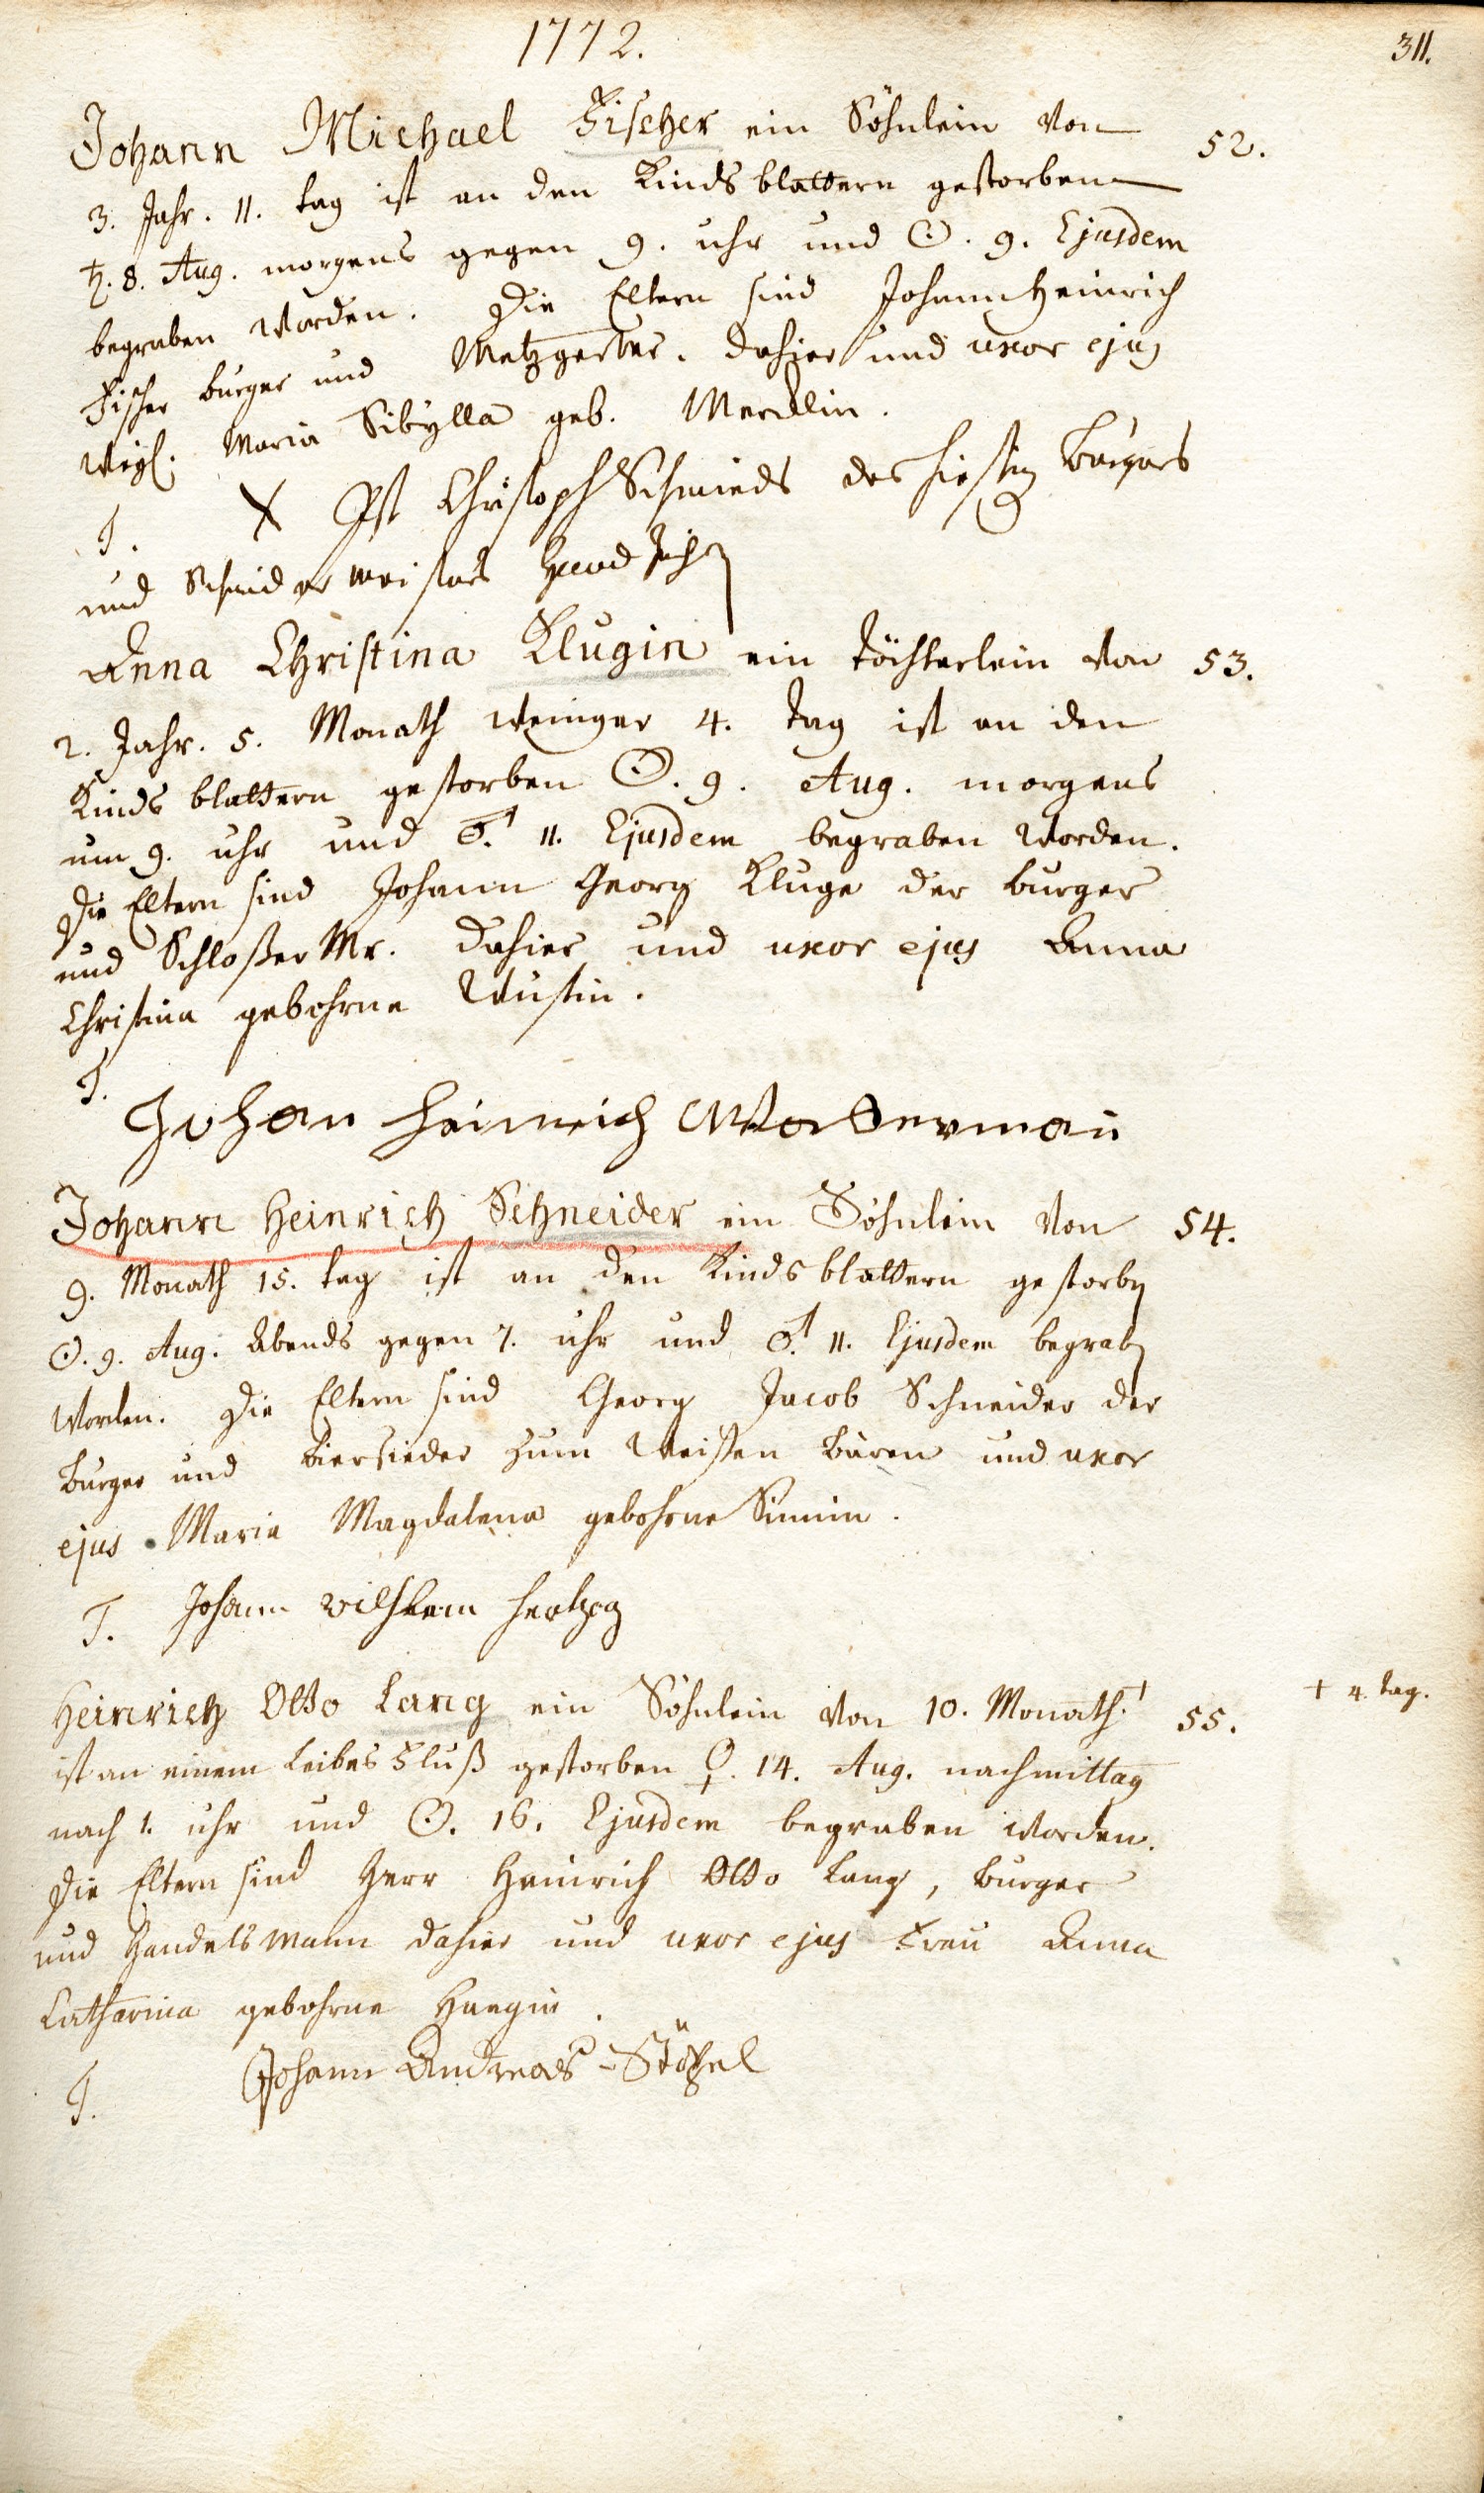 1772.
311.
Johann Michael Fischer ein Söhnlein von 52.
3. Jahr. 11. tag ist an den Kindsblattern gestorben
♄. 8. Aug. morgens gegen 9. uhr und ☉. 9. Ejusdem
begraben worden. Die Eltern sind Johann Heinrich
Fischer burger und Metzger dahier und uxor ejus
Maria Sibylla geb.
T. X Ist Christoph Schmieds des hiesigen Burgers
und Schneidermeisters Handzeichen
Anna Christina Klugin ein Töchterlein von 53.
2. Jahr. 5. Monath weniger 4. tag ist an den
Kindsblattern gestorben ☉. 9. Aug. morgens
um 9. uhr und ♂. 11. Ejusdem begraben worden.
Die Eltern sind Johann Georg Kluge der burger
und Schloßer Mr. dahier und uxor ejus Anna
Christina gebohrne Wustin.
T.
Johan Heinrich Walterman
Johann Heinrich Schneider ein Söhnlein von 54.
9. Monath 15. tag ist an den Kindsblattern gestorben
☉. 9. Aug. Abends gegen 7. uhr und ♂. 11. Ejusdem begraben
worden. Die Eltern sind Georg Jacob Schneider der
burger und Biersieder zum Weißen Bären und uxor
ejus Maria Magdalena gebohrne
T. Johann Wilhelm Hertzog
Heinrich Otto Lang ein Söhnlein von 10. Monath. + 55. + 4. tag.
ist an einem Leibes Fluß gestorben ♀. 14. Aug. nachmittag
nach 1. uhr und ☉. 16. Ejusdem begraben worden.
Die Eltern sind Herr Heinrich Otto Lang, burger
und Handelsmann dahier und uxor ejus Frau Anna
Catharina gebohrne
T. Johann Andreas Stößel